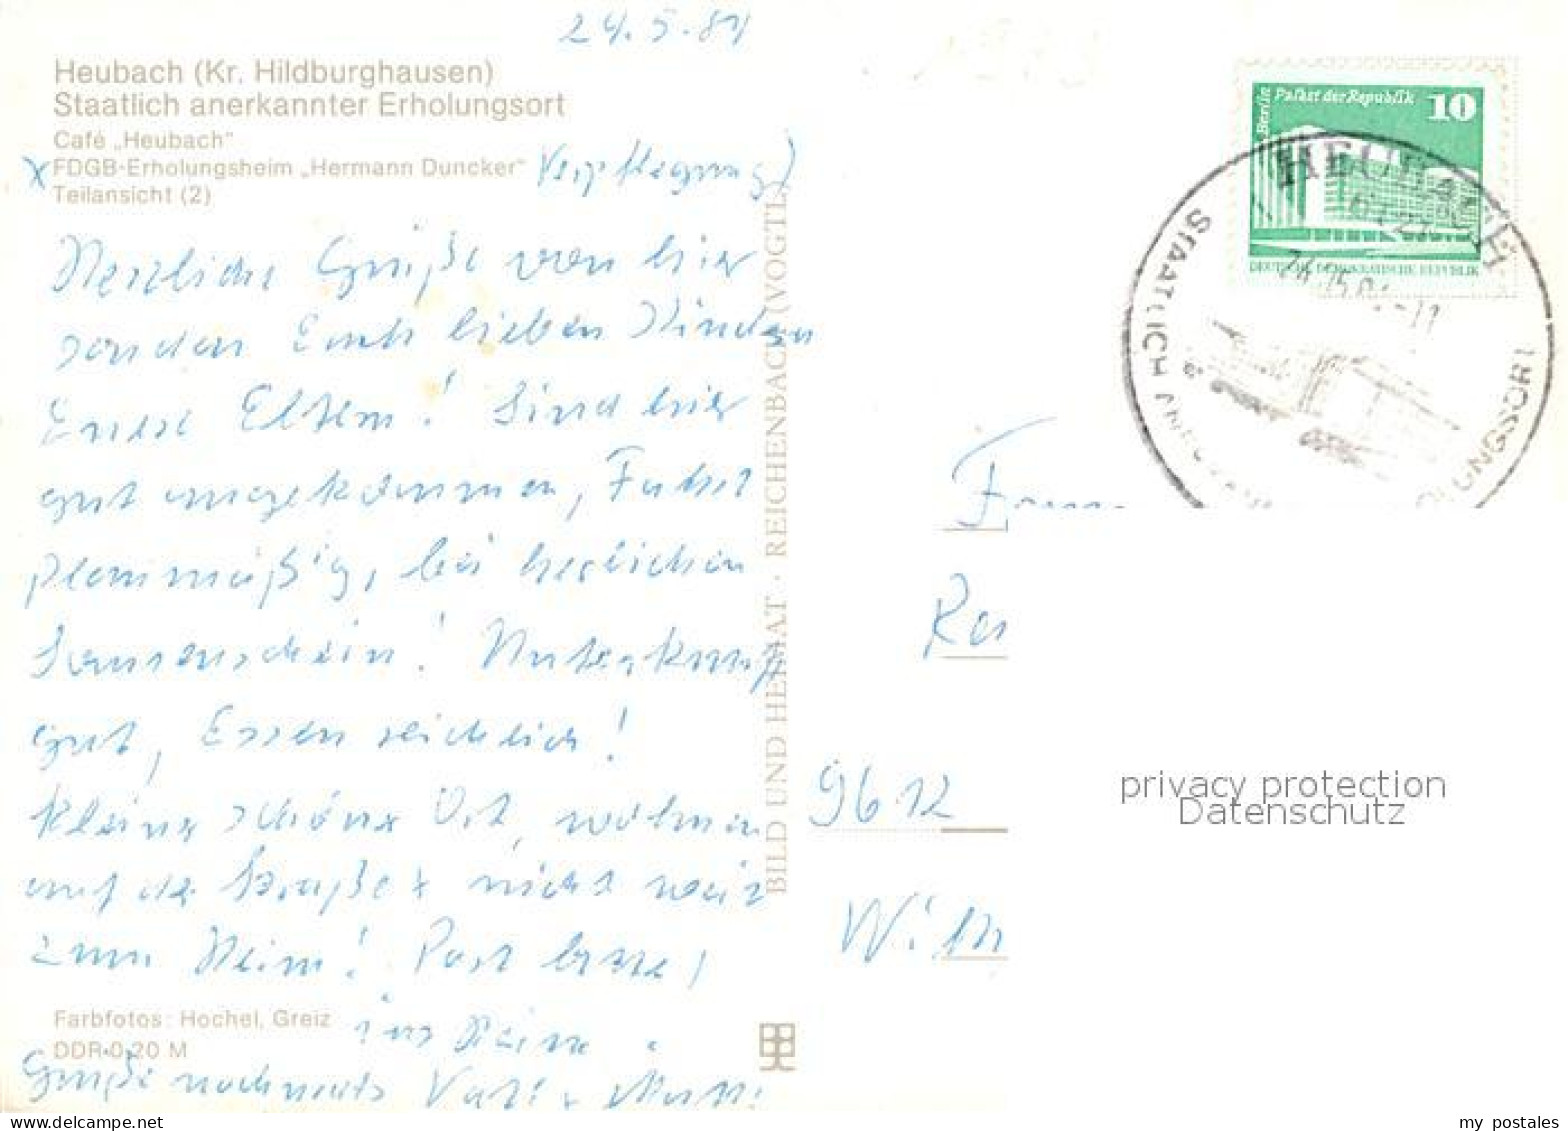 24.5.81
Heubach (Kr. Hildburghausen)
Staatlich anerkannter Erholungsort
Café „Heubach"
x FDGB-Erholungsheim „Hermann Duncker" Verpflegung)
Teilansicht (2)
Herzliche Grüße von hier
senden Euch lieben Kindern
Eure Eltern! Sind hier
gut angekommen, Fahrt
planmäßig, bei herlichen
Sonnenschein! Unterkunft
gut, Essen reichlich!
Kleine schöner Ort, wohnen
auf der Straße nicht weit
zum Heim! Post bitte,
ins Heim.
Grüße nochmals Vati u Mutti
Farbfotos: Hochel, Greiz
DDR 0,20 M
BILD UND HEIMAT · REICHENBACH (VOGTL)
Berlin Palast der Republik 10
DEUTSCHE DEMOKRATISCHE REPUBLIK
HEUBACH
STAATLICH ERHOLUNGSORT
Fam
9612
privacy protection
Datenschutz
www.delcampe.net
my_postales